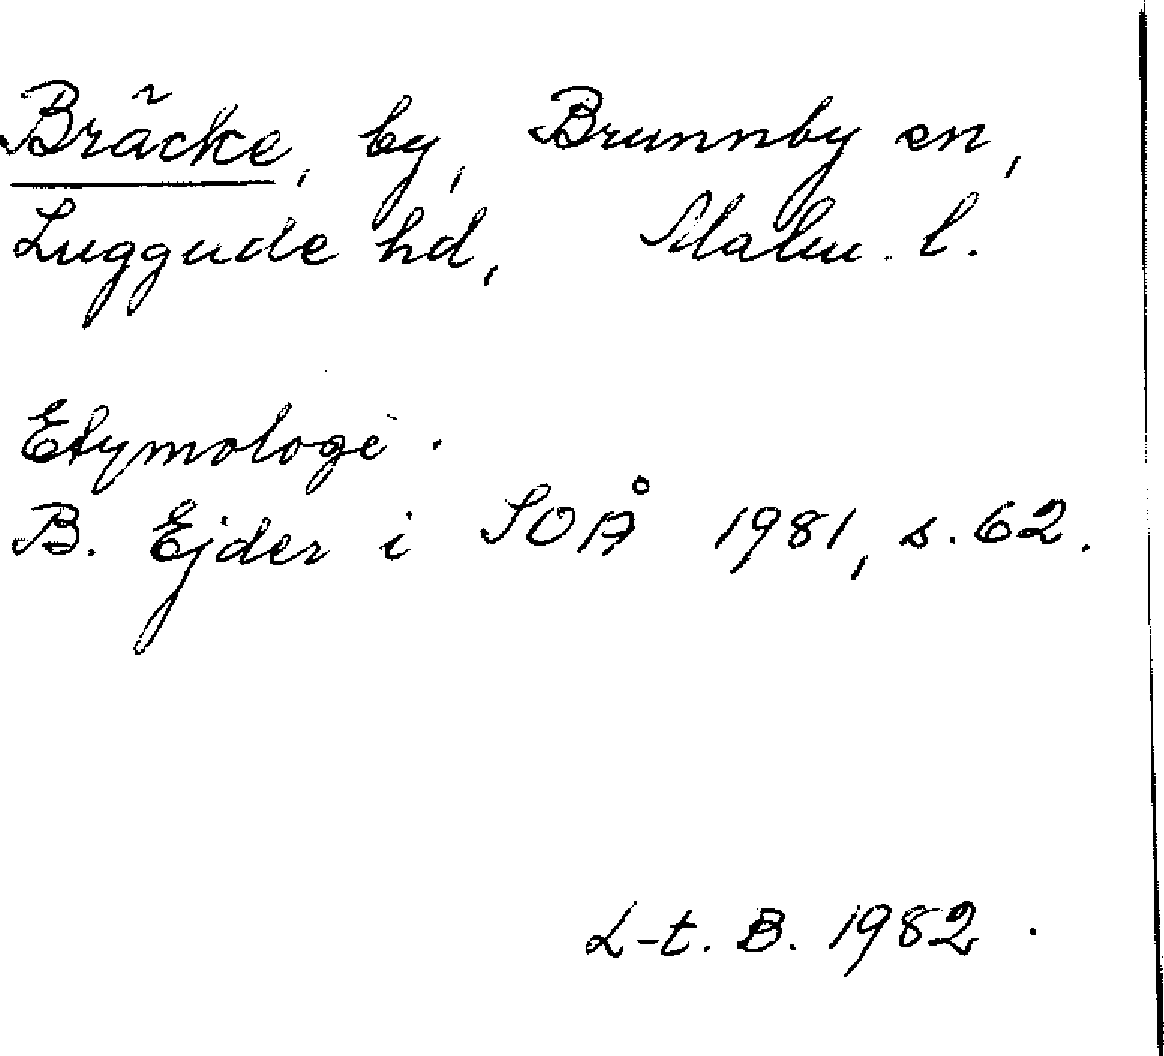 Bräcke, by, Brunnby sn,
Luggude hd, Malm. l.
Etymologi.
B. Ejder i SOÅ 1981, s. 62.
L-t. B. 1982.